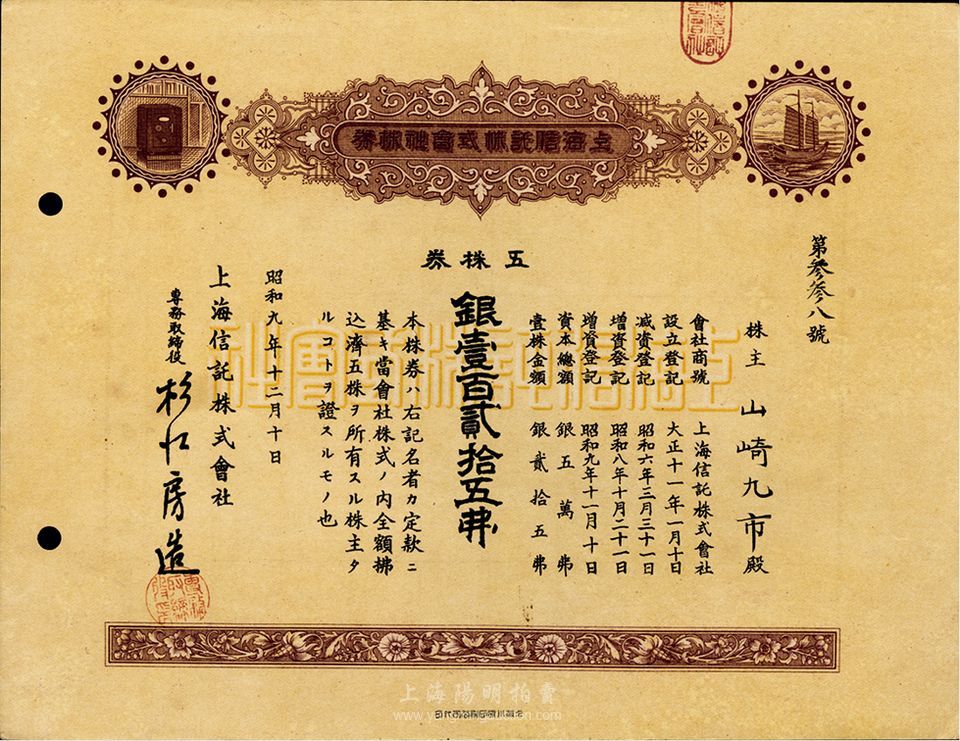 上海信託株式會社株券
第參參八號
株主 山崎九市殿
會社商號 上海信託株式會社
設立登記 大正十一年一月十日
減資登記 昭和六年三月三十一日
增資登記 昭和八年十月二十一日
增資登記 昭和九年十一月十日
資本總額 銀五萬弗
壹株金額 銀貳拾五弗
五株券
銀壹百貳拾五弗
本株券ハ右記名者カ定款ニ
基キ當會社株式ノ内全額拂
込濟五株ヲ所有スル株主タ
ルコトヲ證スルモノ也
昭和九年十二月十日
上海信託株式會社
專務取締役 杉江房造
上海信託株式會社
上海陽明拍賣